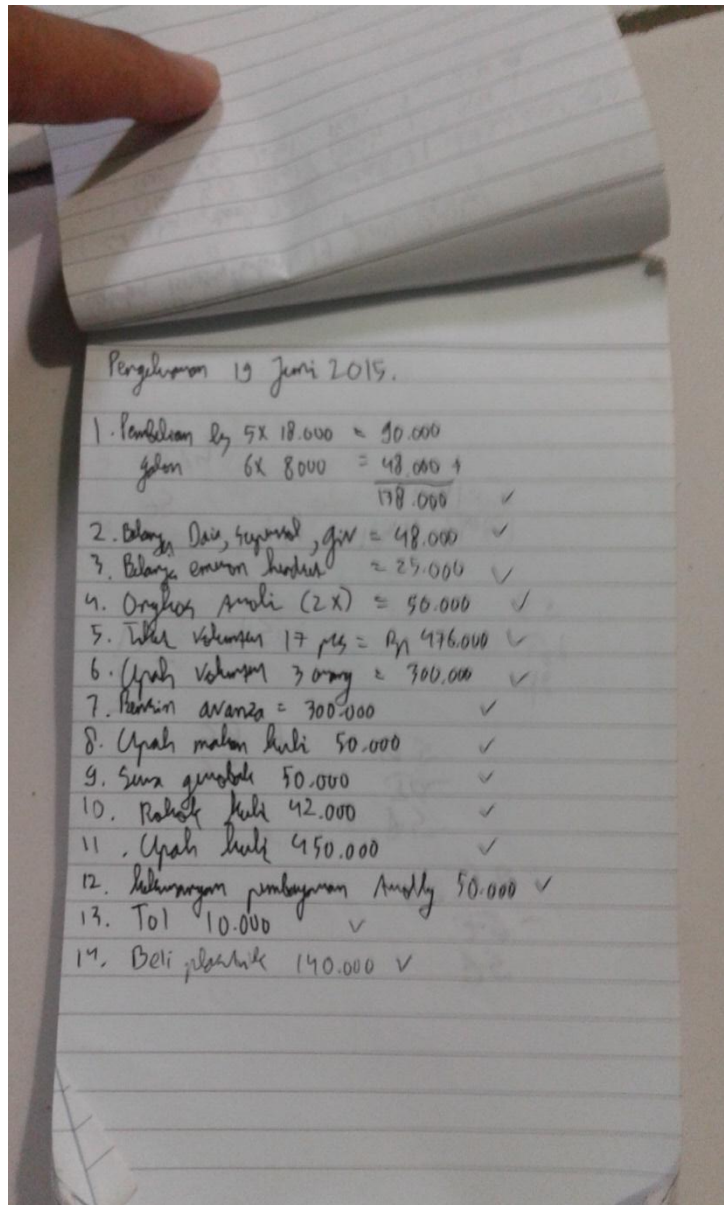 Pengeluaran 19 Juni 2015.
1. Pembelian lg 5 x 18.000 = 90.000
galon 6 x 8000 = 48.000 +
138.000 ✓
2. Belanja Daia, supersol, giv = 48.000 ✓
3. Belanja emeron = 25.000 ✓
4. Ongkos Andi (2x) = 50.000 ✓
5. Tiket 17 pcs = Rp 476.000 ✓
6. Upah 3 orang = 300.000 ✓
7. Bensin avanza = 300.000 ✓
8. Upah makan kuli 50.000 ✓
9. Sewa gerobak 50.000 ✓
10. Rokok kuli 42.000 ✓
11. Upah kuli 450.000 ✓
12. kekurangan pembayaran 50.000 ✓
13. Tol 10.000 ✓
14. Beli plastik 140.000 ✓